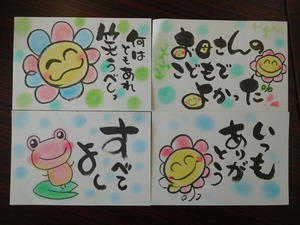 何は
ともあれ
笑うべしっ
お母さんの
こどもで
よかった
すべて
よし
いつも
ありが
とう